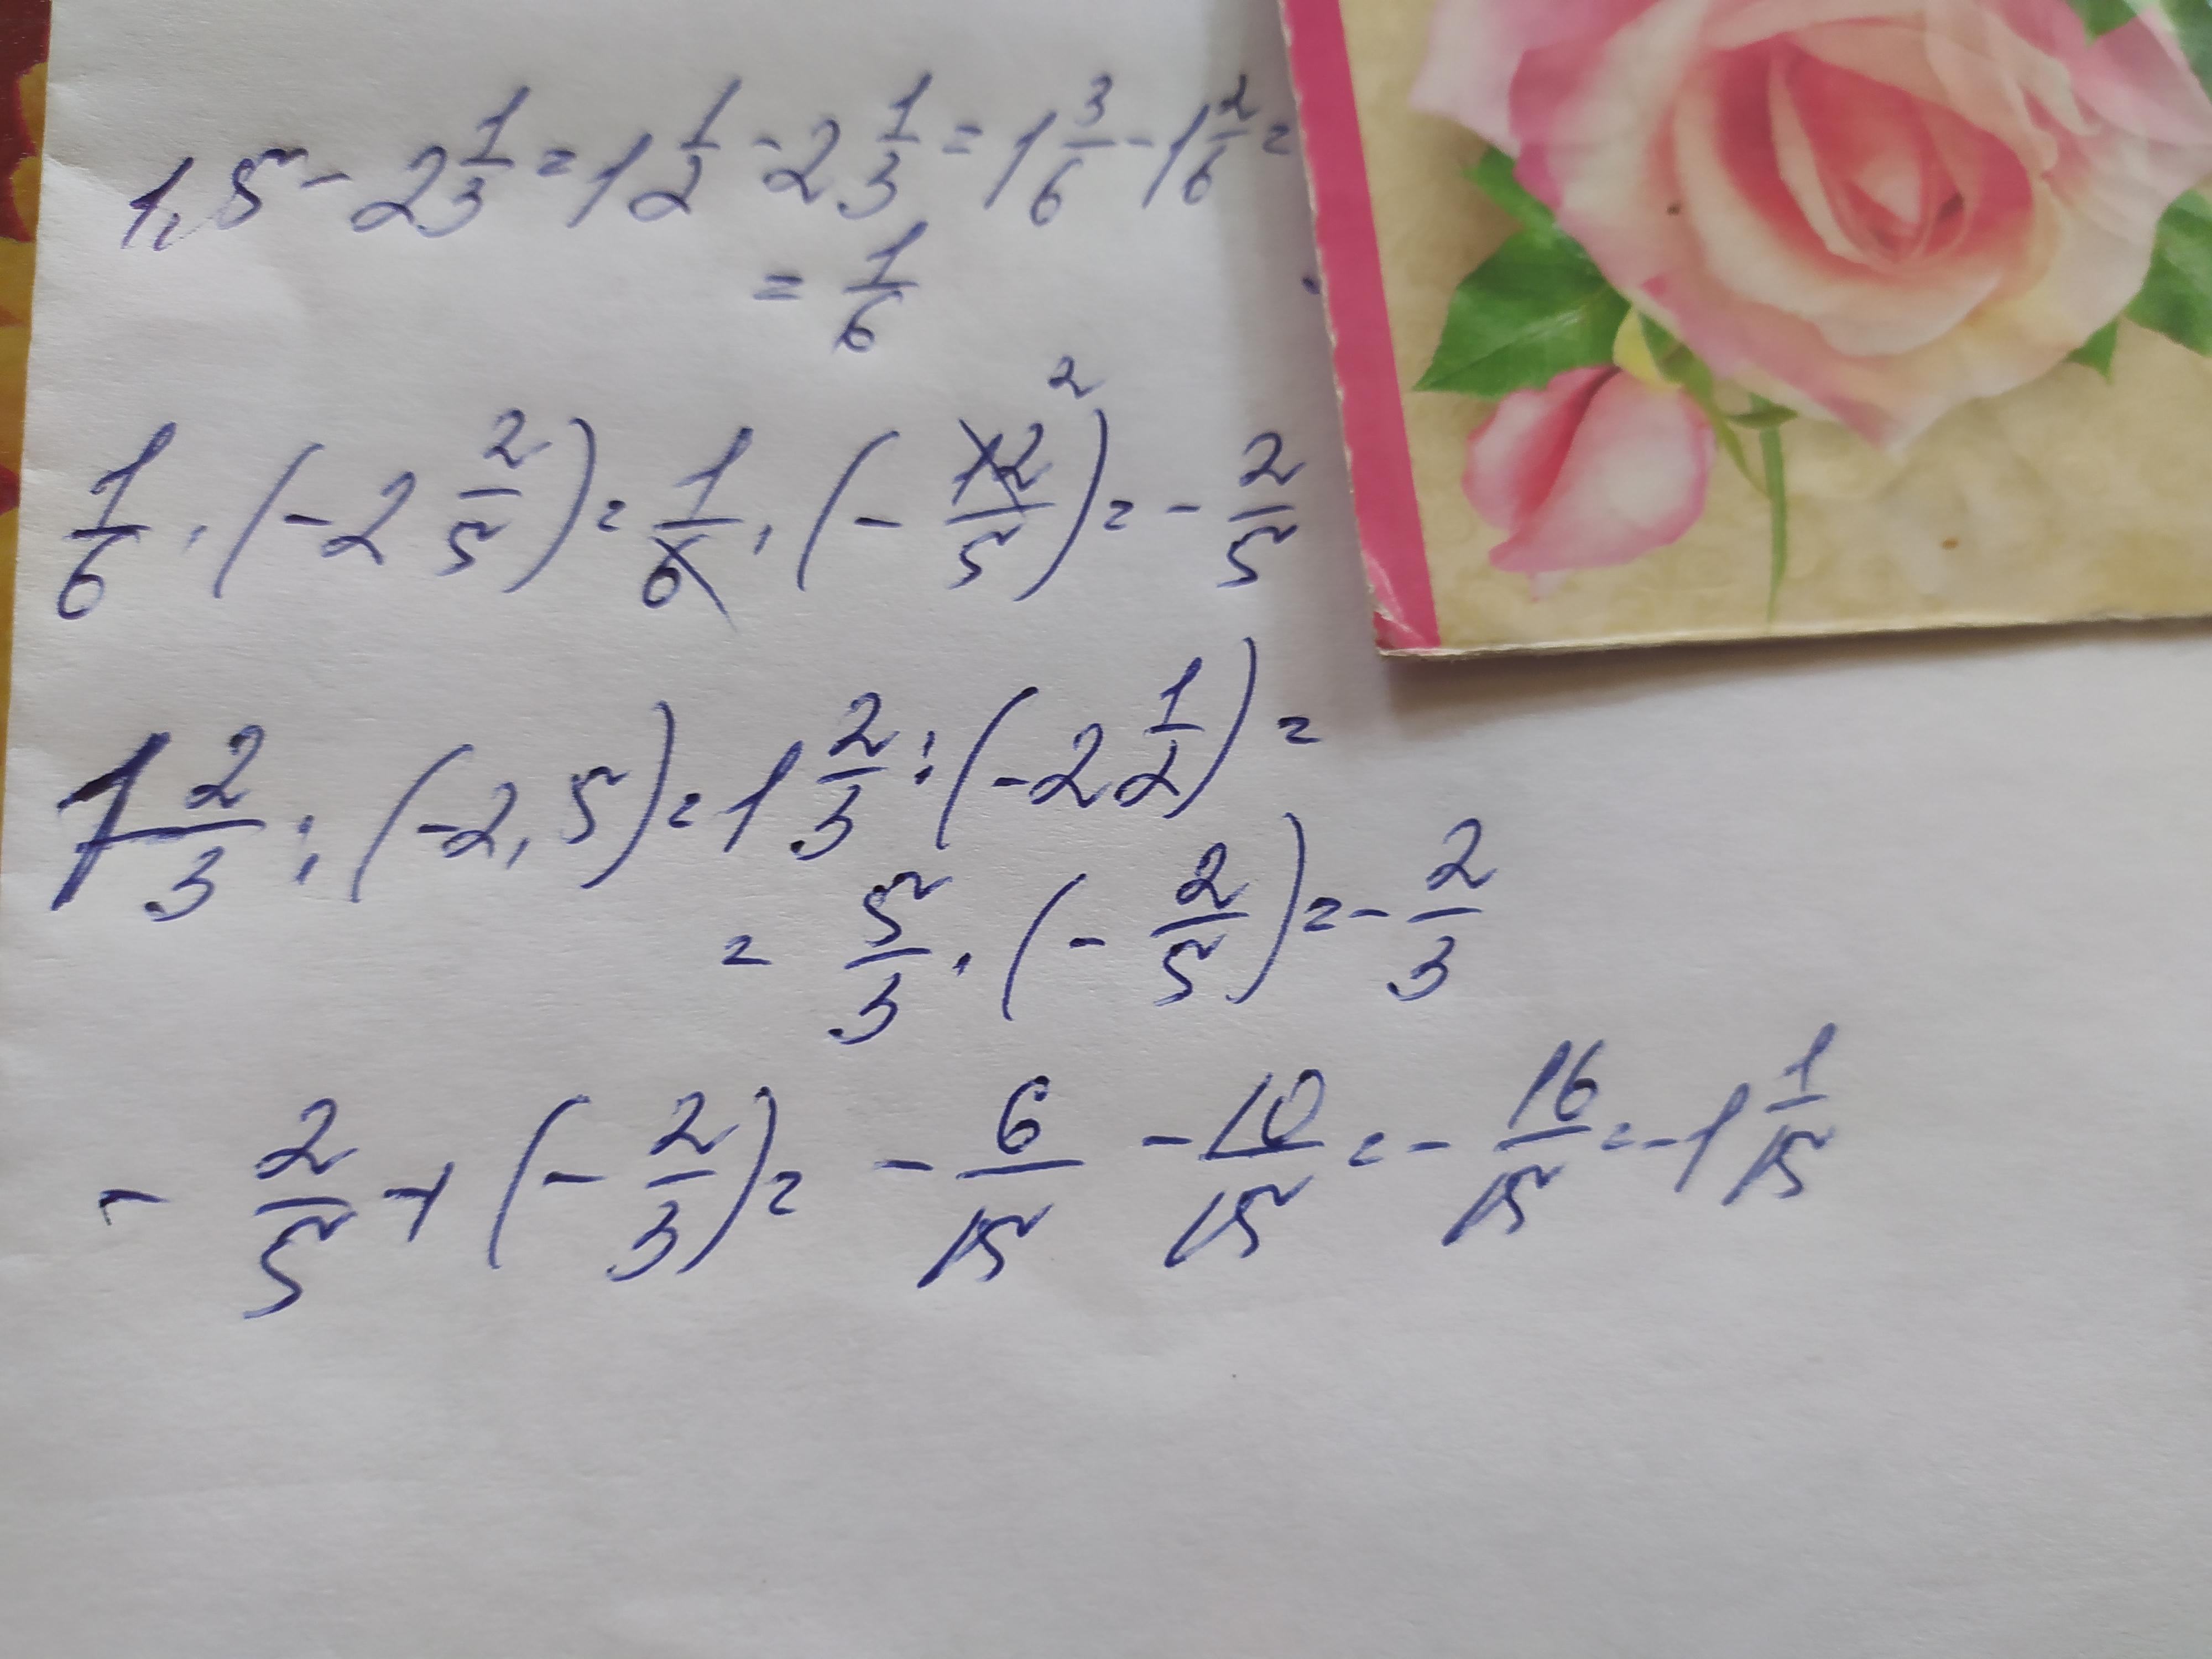 1,5 - 2 1/3 = 1 1/2 - 2 1/3 = 1 3/6 - 1 2/6 =
= 1/6
1/6 · (-2 2/5) = 1/6 · (- 12/5)² = - 2/5
1 2/3 : (-2,5) = 1 2/3 : (-2 1/2) =
= 5/3 · (- 2/5) = - 2/3
- 2/5 + (- 2/3) = - 6/15 - 10/15 = - 16/15 = -1 1/15